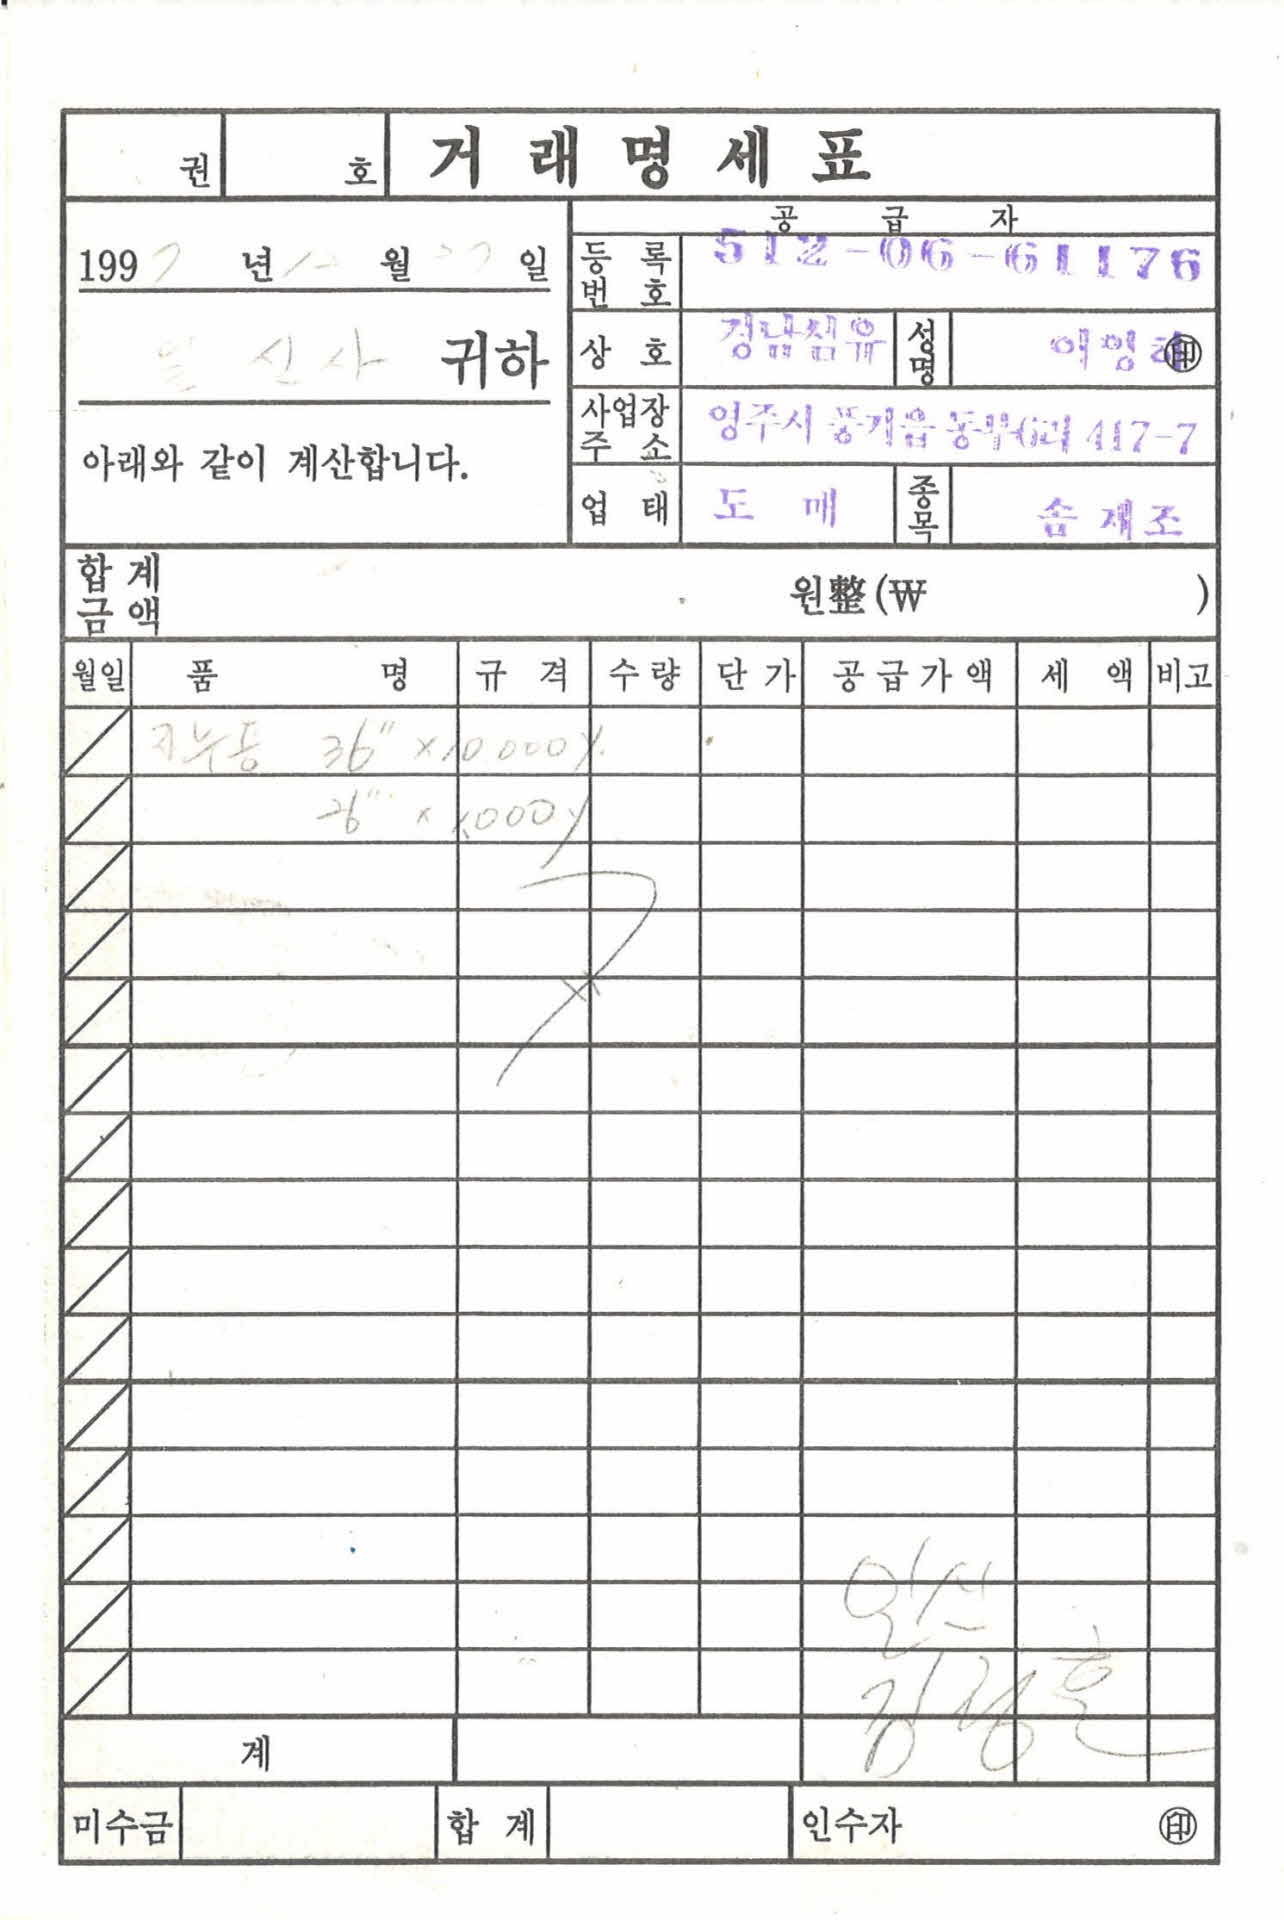 권 호 거래명세표
공급자
1997년 12월 27일
등록번호 512-06-61176
일신사 귀하
상호 경남섬유 성명 이영하 ㊞
아래와 같이 계산합니다.
사업장주소 영주시 풍기읍 동부 417-7
업태 도매 종목 솜제조
합계금액 원整(₩ )
월일 품명 규격 수량 단가 공급가액 세액 비고
36" × 10000Y
26" ×
인선
김정훈
계
미수금 합계 인수자 ㊞